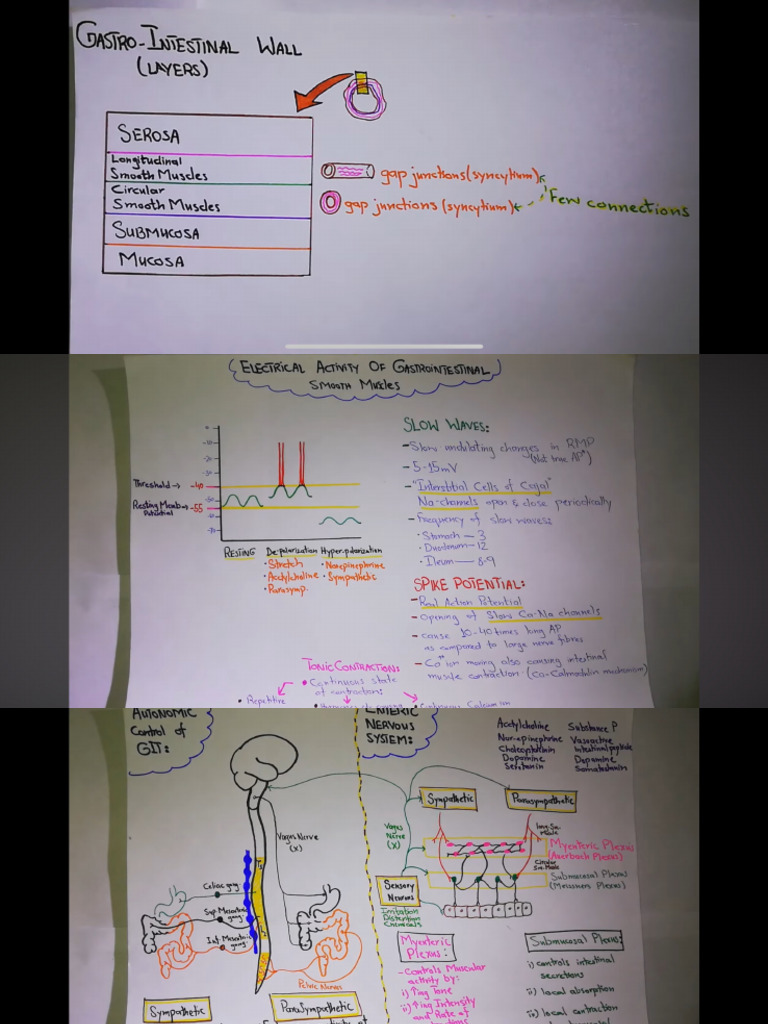 GASTRO-INTESTINAL WALL
(LAYERS)
SEROSA
Longitudinal
Smooth Muscles
Circular
Smooth Muscles
SUBMUCOSA
MUCOSA
gap junctions (syncytium)
gap junctions (syncytium)
Few connections
ELECTRICAL ACTIVITY OF GASTROINTESTINAL
SMOOTH MUSCLES
Threshold → -40
Resting Memb → -55
Potential
RESTING
De-polarization
• Stretch
• Acetylcholine
• Parasymp.
Hyper-polarization
• Norepinephrine
• Sympathetic
SLOW WAVES:
- Slow undulating changes in RMP
(Not true AP)
- 5-15mV
- "Interstitial Cells of Cajal"
Na-channels open & close periodically
- Frequency of slow waves:
• Stomach — 3
• Duodenum — 12
• Ileum — 8-9
SPIKE POTENTIAL:
- Real Action Potential
- Opening of Slow Ca-Na channels
- cause 10-40 times long AP
as compared to large nerve fibres
- Ca⁺⁺ ion moving also causing intestinal
muscle contraction (Ca-Calmodulin mechanism)
TONIC CONTRACTIONS
• Continuous state
of contractions
• Repetitive
AUTONOMIC
Control of
GIT:
Vagus Nerve
(X)
Celiac gang
Sup. Mesentric
gang
Inf. Mesentric
gang
Pelvic Nerves
Sympathetic
ParaSympathetic
ENTERIC
NERVOUS
SYSTEM:
Acetylcholine
Nor-epinephrine
Cholecystokin
Dopamine
Serotonin
Substance P
Vasoactive
Intestinal peptide
Dopamine
Somatostatin
Sympathetic
Parasympathetic
Vagus
Nerve
(X)
long. Sm.
Muscle
Myenteric Plexus
(Auerbach Plexus)
Circular
Sm. Muscle
Submucosal Plexus
(Meissners Plexus)
Sensory
Neurons
Irritation
Distention
Chemicals
Myenteric
Plexus:
- Controls Muscular
activity by:
i) ↑ing Tone
ii) ↑ing Intensity
and Rate of
Submucosal Plexus:
i) controls intestinal
secretions
ii) local absorption
iii) local contraction